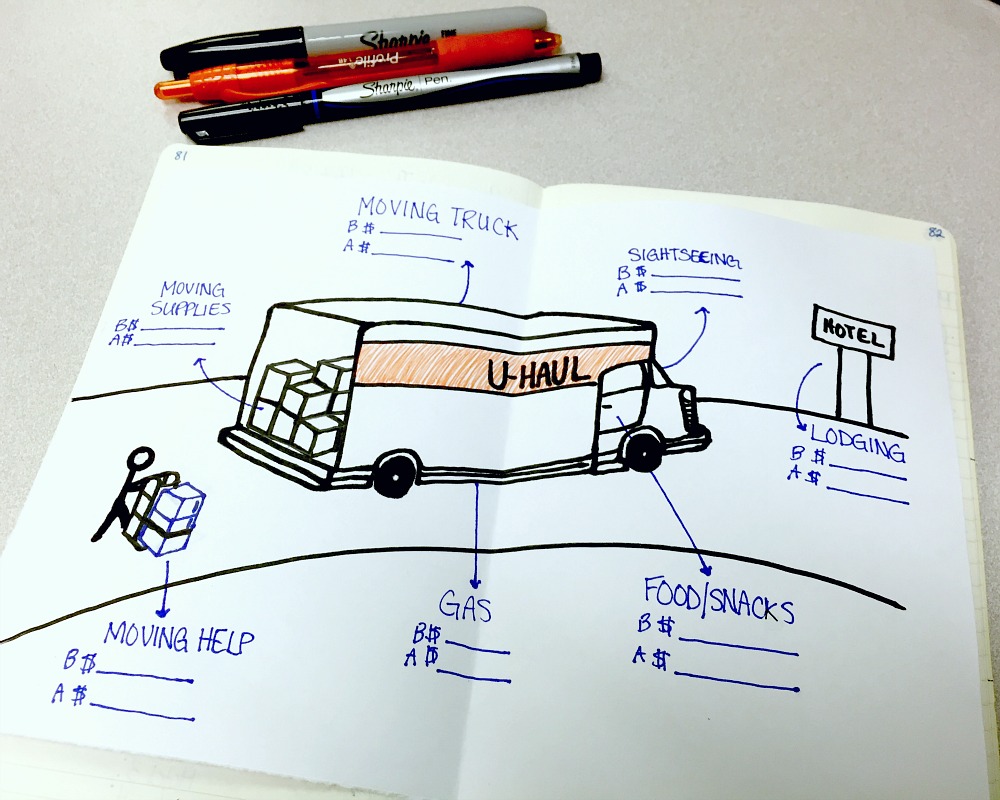 Sharpie FINE
Profile 1.4B
Sharpie Pen.
81
82
MOVING TRUCK
B $
A $
SIGHTSEEING
B $
A $
MOVING
SUPPLIES
B $
A $
MOTEL
U-HAUL
LODGING
B $
A $
MOVING HELP
B $
A $
GAS
B $
A $
FOOD/SNACKS
B $
A $